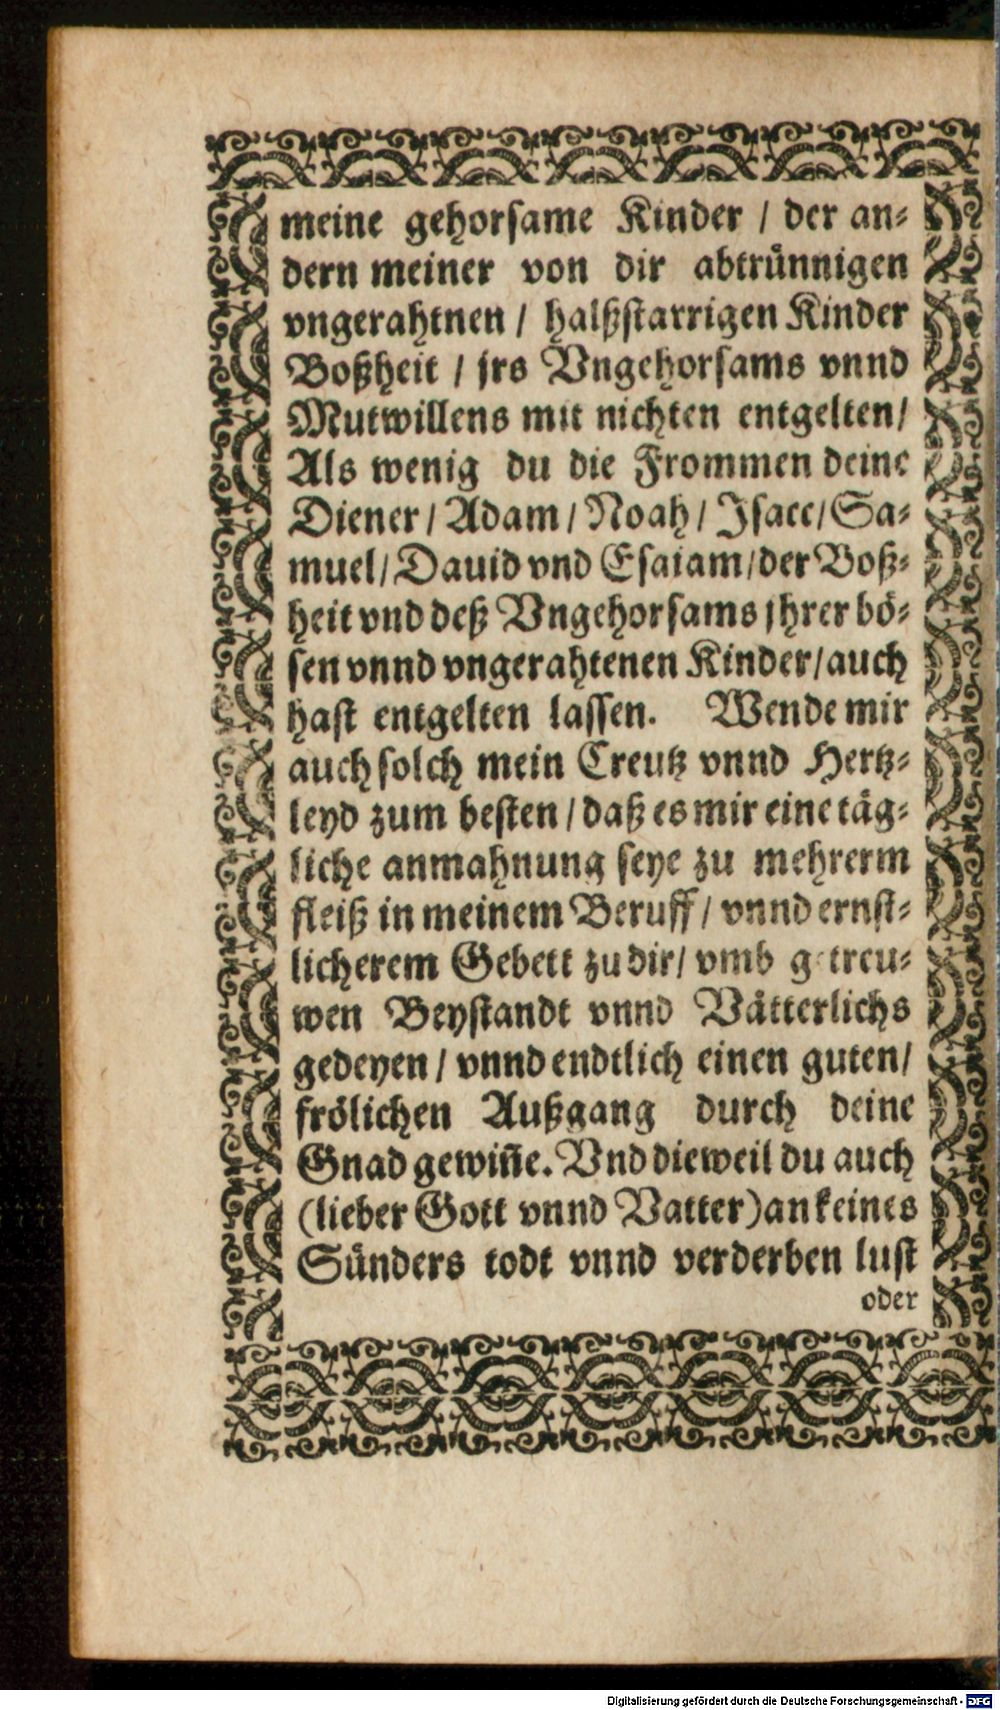 meine gehorsame Kinder / der an⸗
dern meiner von dir abtrünnigen
vngerahtnen / halßstarrigen Kinder
Boßheit / jrs Vngehorsams vnnd
Mutwillens mit nichten entgelten /
Als wenig du die Frommen deine
Diener / Adam / Noah / Isacc / Sa⸗
muel / Dauid vnd Esaiam / der Boß⸗
heit vnd deß Vngehorsams jhrer bö⸗
sen vnnd vngerahtenen Kinder / auch
hast entgelten lassen. Wende mir
auch solch mein Creutz vnnd Hertz⸗
leyd zum besten / daß es mir eine täg⸗
liche anmahnung seye zu mehrerm
fleiß in meinem Beruff / vnnd ernst⸗
licherem Gebett zu dir / vmb getreu⸗
wen Beystandt vnnd Vätterlichs
gedeyen / vnnd endtlich einen guten /
frölichen Außgang durch deine
Gnad gewiñe. Vnd dieweil du auch
(lieber Gott vnnd Vatter) an keines
Sünders todt vnnd verderben lust
oder
Digitalisierung gefördert durch die Deutsche Forschungsgemeinschaft - DFG